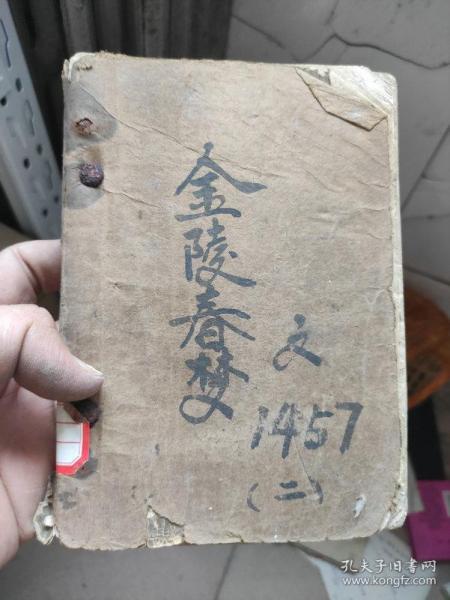 金陵春梦
文
1457
(二)
孔夫子旧书网
www.kongfz.com